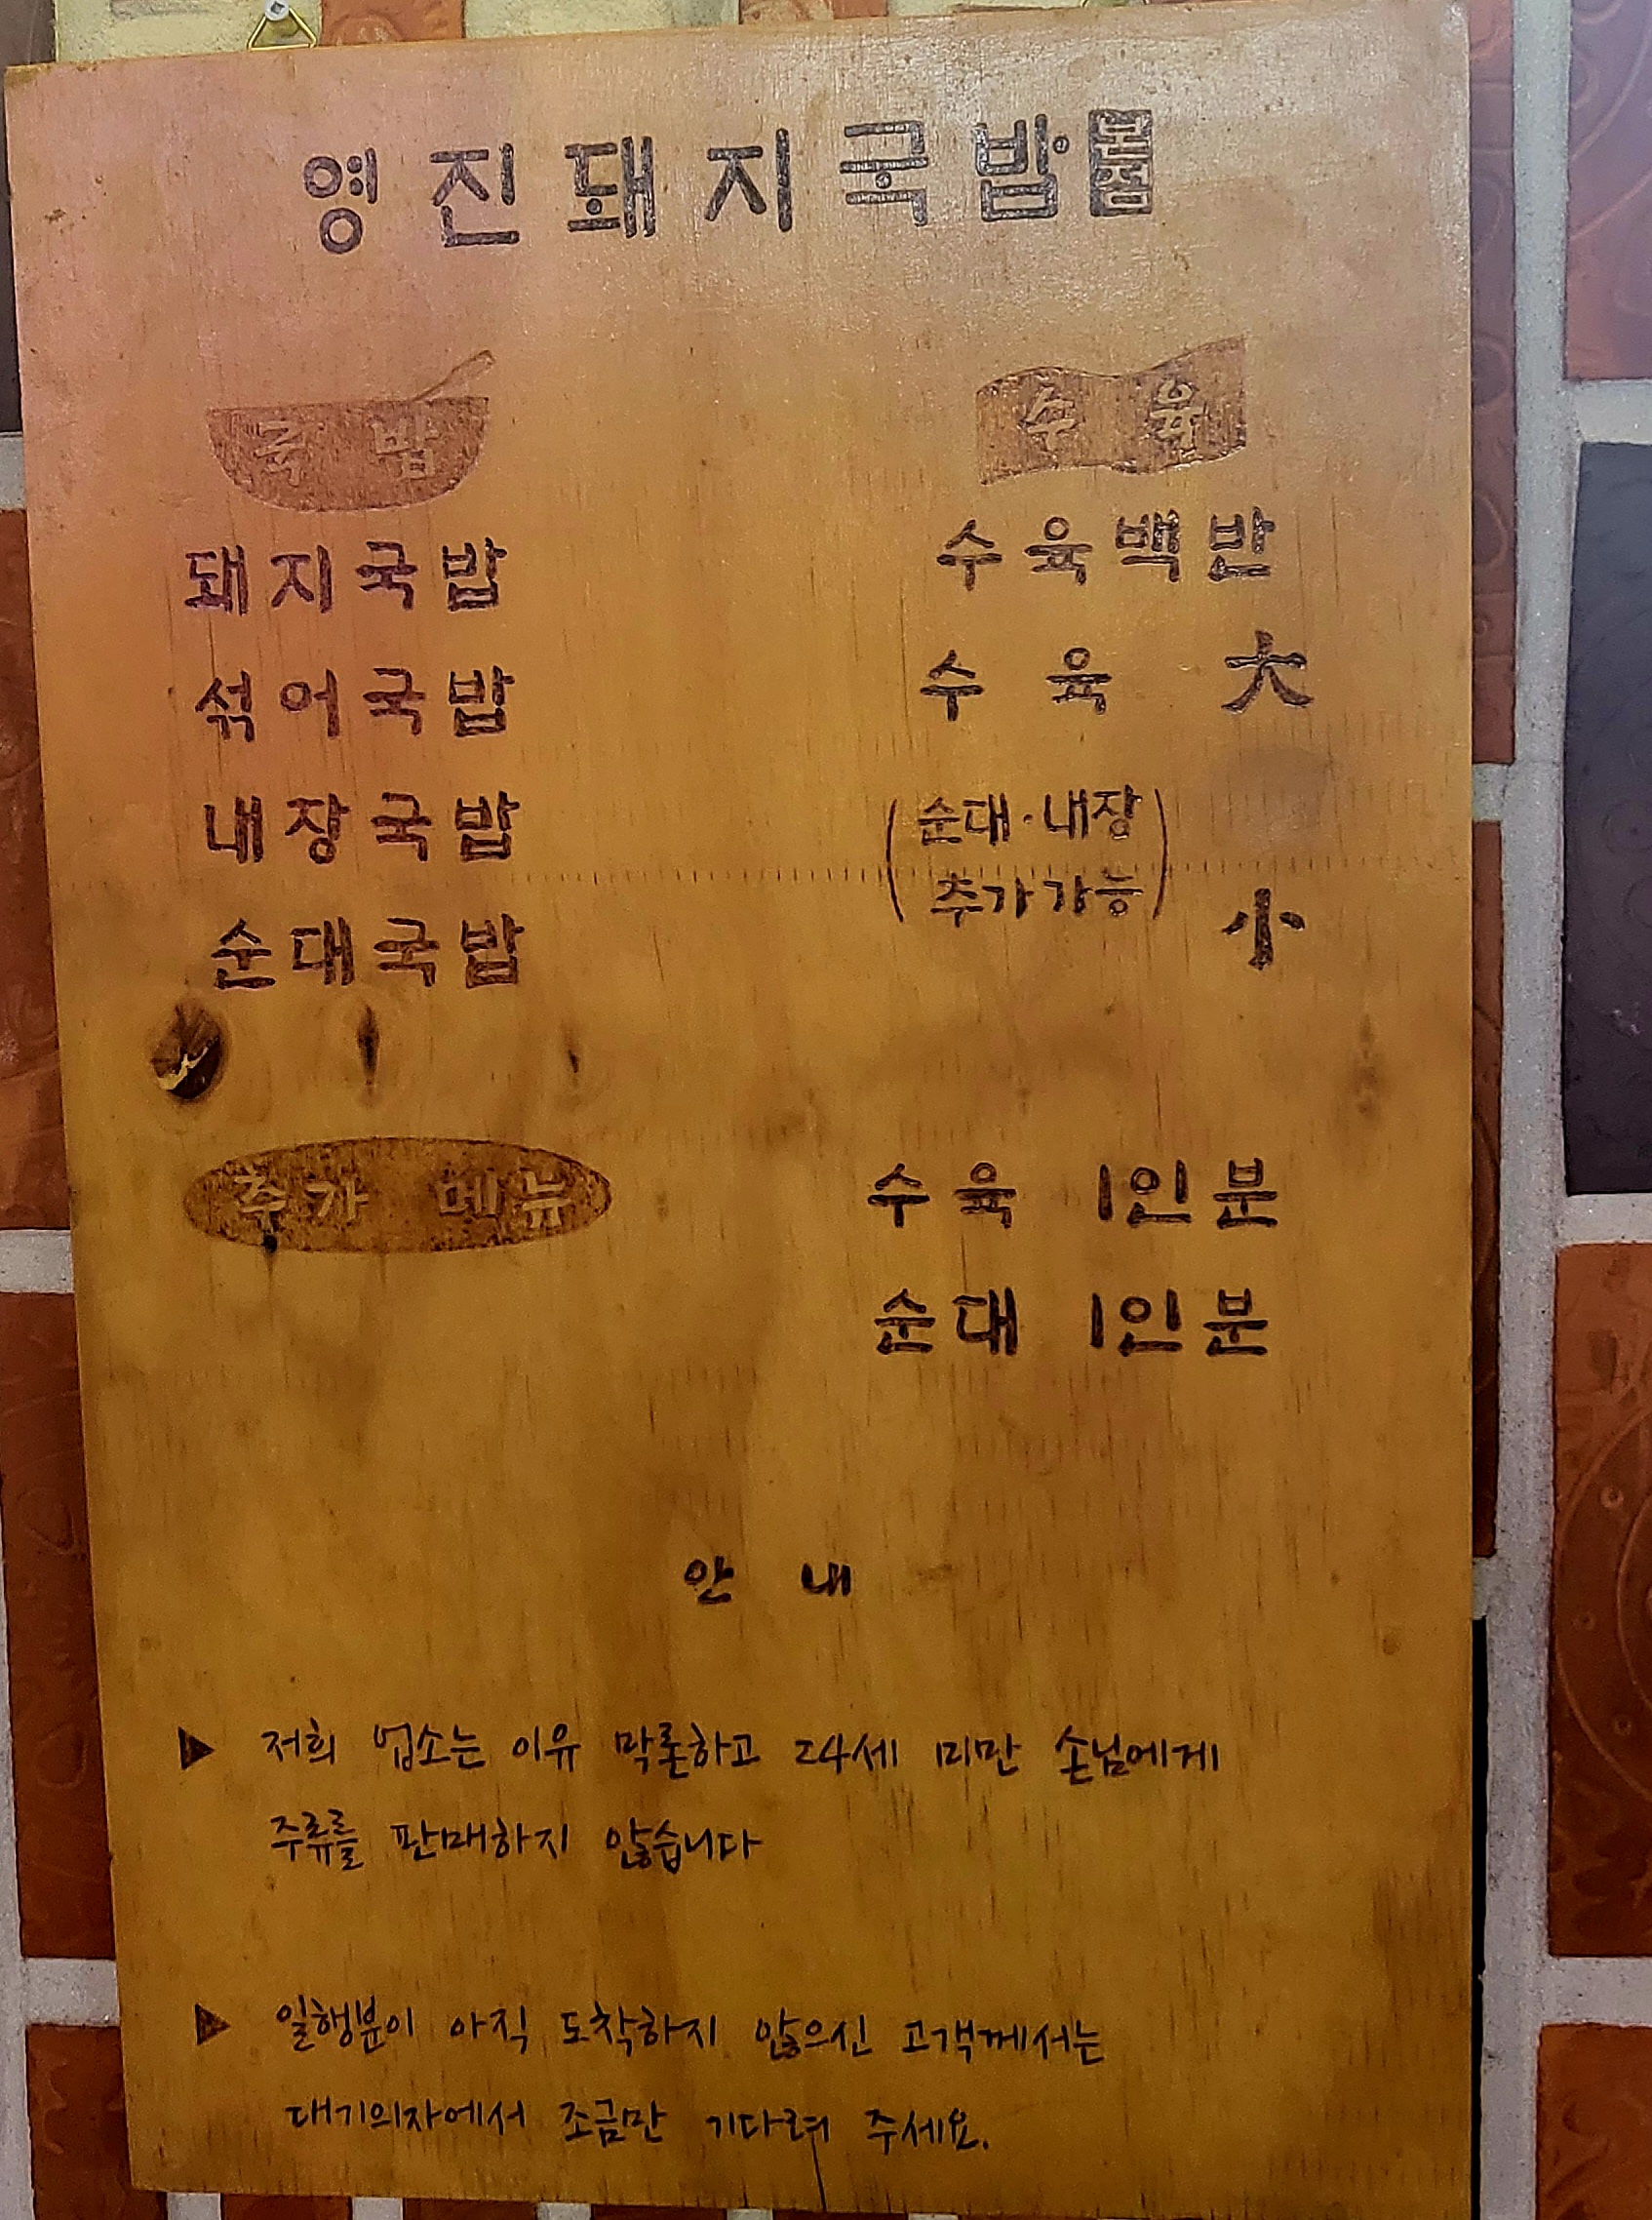 영진돼지국밥 본점
국밥
돼지국밥
섞어국밥
내장국밥
순대국밥
수육
수육백반
수육 大
(순대·내장
추가가능)
小
추가 메뉴
수육 1인분
순대 1인분
안내
▶ 저희 업소는 이유 막론하고 24세 미만 손님에게
주류를 판매하지 않습니다
▶ 일행분이 아직 도착하지 않으신 고객께서는
대기의자에서 조금만 기다려 주세요.